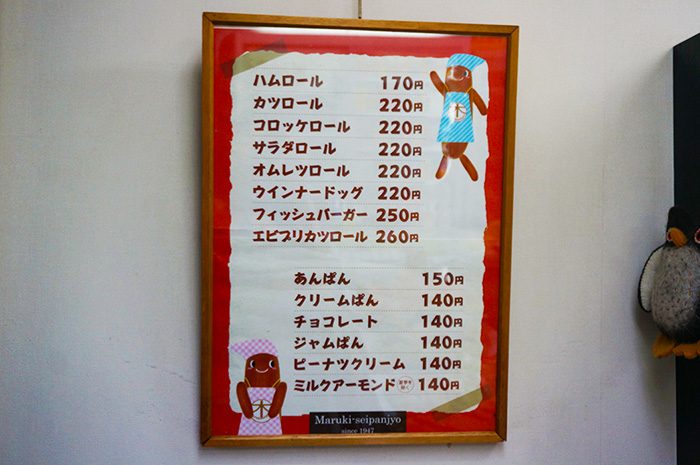 ハムロール 170円
カツロール 220円
コロッケロール 220円
サラダロール 220円
オムレツロール 220円
ウインナードッグ 220円
フィッシュバーガー 250円
エビプリカツロール 260円
あんぱん 150円
クリームぱん 140円
チョコレート 140円
ジャムぱん 140円
ピーナツクリーム 140円
ミルクアーモンド 140円
Maruki-seipanjyo
since 1947